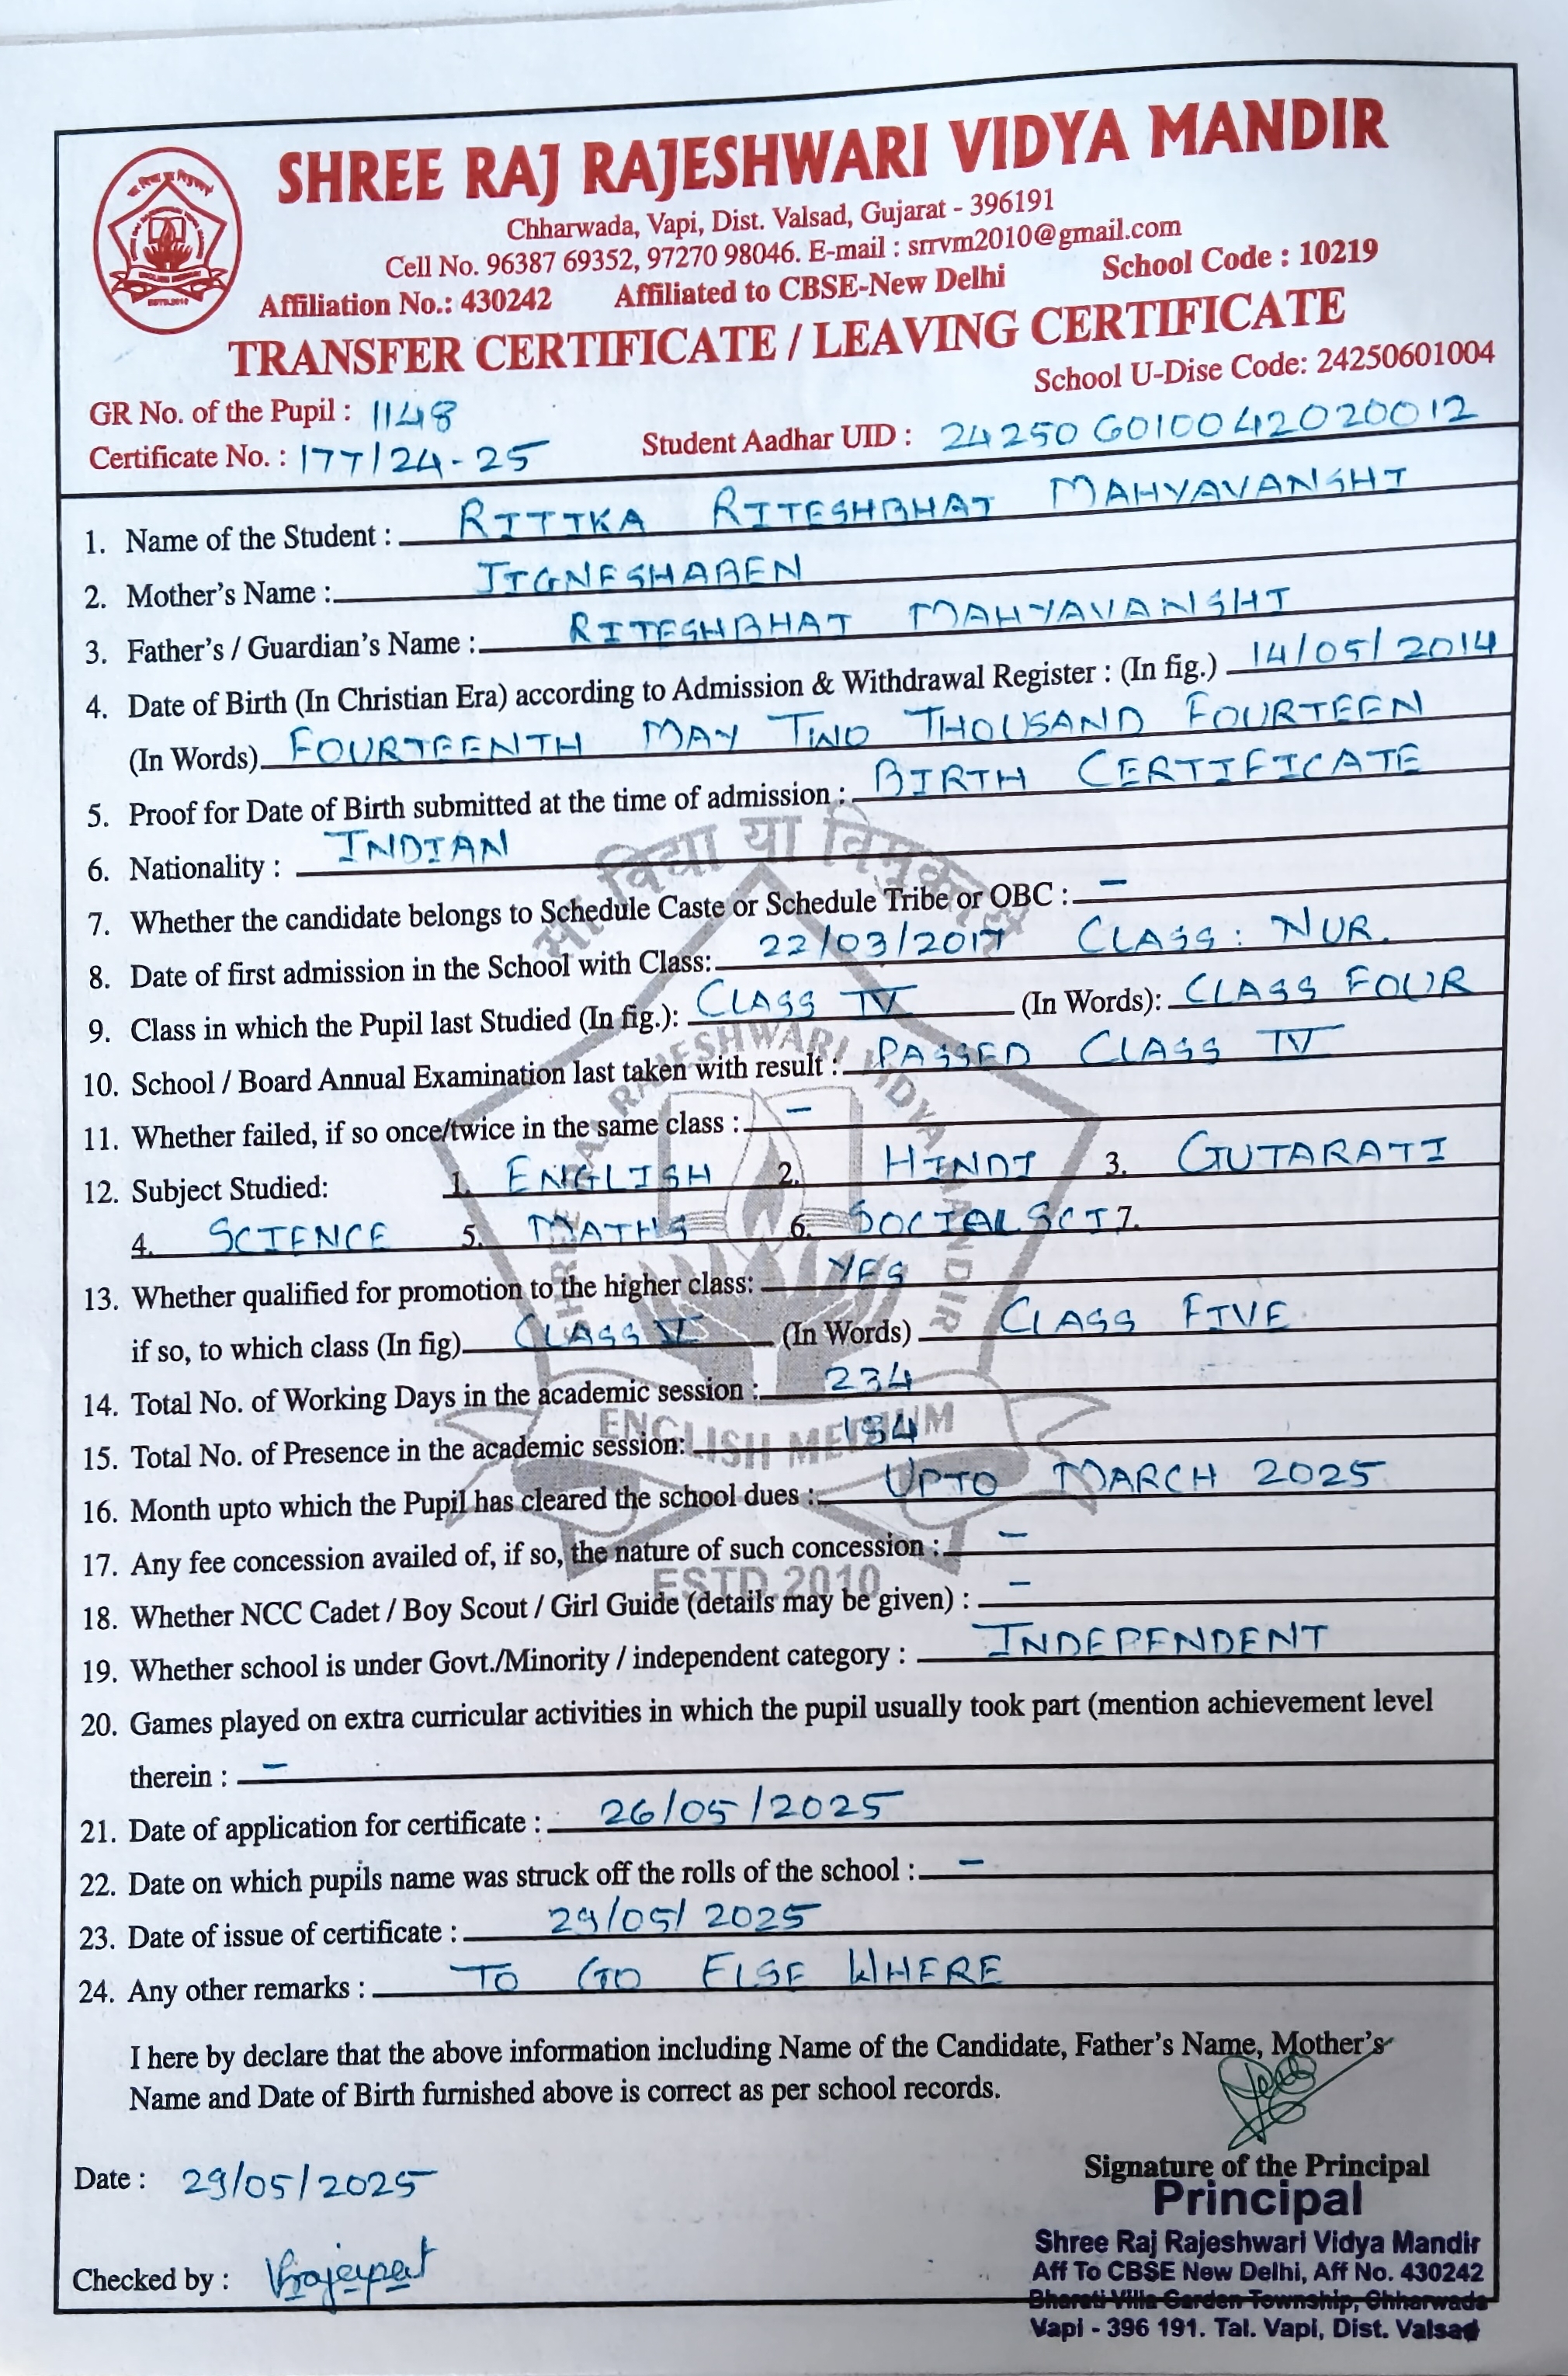 SHREE RAJ RAJESHWARI VIDYA MANDIR
Chharwada, Vapi, Dist. Valsad, Gujarat - 396191
Cell No. 96387 69352, 97270 98046. E-mail : srrvm2010@gmail.com
Affiliation No.: 430242 Affiliated to CBSE-New Delhi School Code : 10219
TRANSFER CERTIFICATE / LEAVING CERTIFICATE
School U-Dise Code: 24250601004
GR No. of the Pupil : 1148
Certificate No. : 177/24-25 Student Aadhar UID : 242506010042020012
1. Name of the Student : RITIKA RITESHBHAI MAHYAVANSHI
2. Mother's Name : JIGNESHABEN
3. Father's / Guardian's Name : RITESHBHAI MAHYAVANSHI
4. Date of Birth (In Christian Era) according to Admission & Withdrawal Register : (In fig.) 14/05/2014
(In Words) FOURTEENTH MAY TWO THOUSAND FOURTEEN
5. Proof for Date of Birth submitted at the time of admission : BIRTH CERTIFICATE
6. Nationality : INDIAN
7. Whether the candidate belongs to Schedule Caste or Schedule Tribe or OBC : -
8. Date of first admission in the School with Class: 22/03/2017 CLASS: NUR.
9. Class in which the Pupil last Studied (In fig.): CLASS IV (In Words): CLASS FOUR
10. School / Board Annual Examination last taken with result : PASSED CLASS IV
11. Whether failed, if so once/twice in the same class : -
12. Subject Studied: 1. ENGLISH 2. HINDI 3. GUJARATI
4. SCIENCE 5. MATHS 6. SOCIAL SCI 7.
13. Whether qualified for promotion to the higher class: YES
if so, to which class (In fig) CLASS V (In Words) CLASS FIVE
14. Total No. of Working Days in the academic session : 234
15. Total No. of Presence in the academic session:
16. Month upto which the Pupil has cleared the school dues : UPTO MARCH 2025
17. Any fee concession availed of, if so, the nature of such concession : -
18. Whether NCC Cadet / Boy Scout / Girl Guide (details may be given) : -
19. Whether school is under Govt./Minority / independent category : INDEPENDENT
20. Games played on extra curricular activities in which the pupil usually took part (mention achievement level
therein : -
21. Date of application for certificate : 26/05/2025
22. Date on which pupils name was struck off the rolls of the school : -
23. Date of issue of certificate : 29/05/2025
24. Any other remarks : TO GO ELSE WHERE
I here by declare that the above information including Name of the Candidate, Father's Name, Mother's
Name and Date of Birth furnished above is correct as per school records.
Date : 29/05/2025
Signature of the Principal
Principal
Shree Raj Rajeshwari Vidya Mandir
Aff To CBSE New Delhi, Aff No. 430242
Bharati Villa Garden Township, Chharwada
Vapi - 396 191. Tal. Vapi, Dist. Valsad
Checked by :
सा विद्या या विमुक्तये
SHREE RAJ RAJESHWARI VIDYA MANDIR
ENGLISH MEDIUM
ESTD.2010